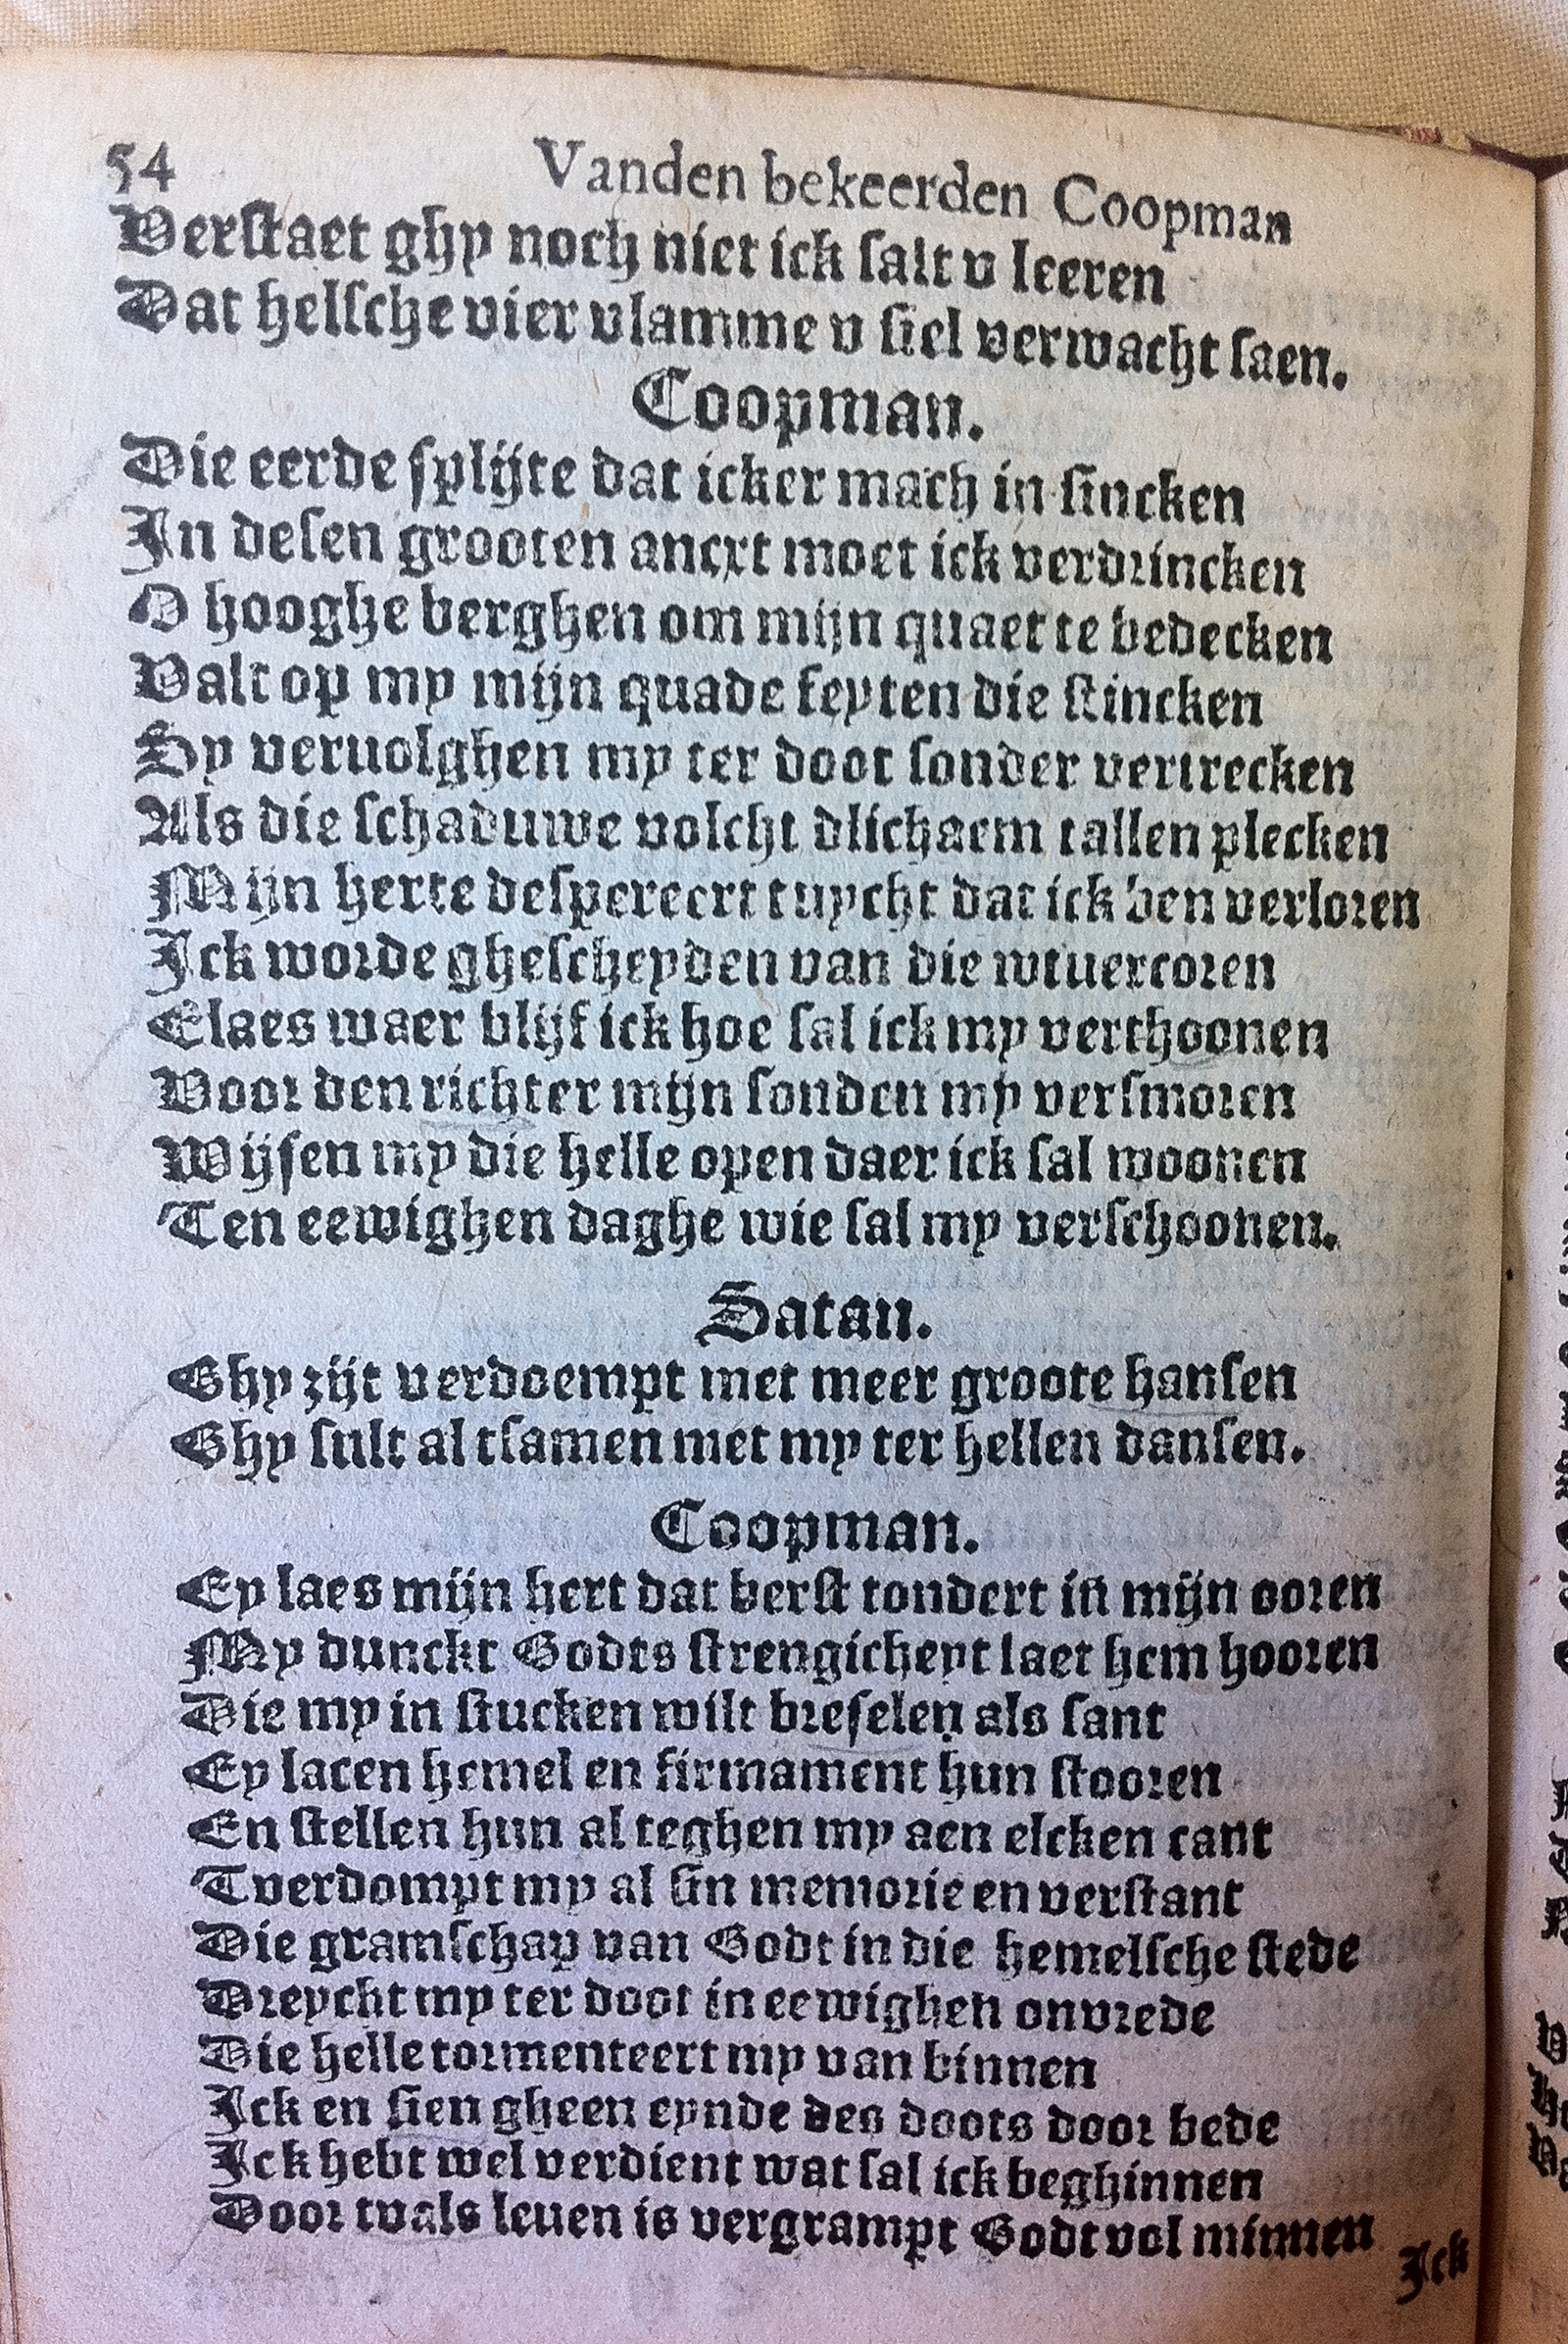 54 Vanden bekeerden Coopman
Verstaet ghy noch niet ick salt v leeren
Dat helsche vier vlamme v siel verwacht saen.
Coopman.
Die eerde splijte dat icker mach in sincken
In desen grooten ancxt moet ick verdrincken
O hooghe berghen om mijn quaet te bedecken
Valt op my mijn quade feyten die stincken
Sy veruolghen my ter doot sonder vertrecken
Als die schaduwe volcht dlichaem tallen plecken
Mijn herte despereert tuycht dat ick ben verloren
Ick worde ghescheyden van die wtuercoren
Elaes waer blijf ick hoe sal ick my verthoonen
Voor den richter mijn sonden my versmoren
Wijsen my die helle open daer ick sal woonen
Ten eewighen daghe wie sal my verschoonen.
Satan.
Ghy zijt verdoempt met meer groote hansen
Ghy sult al tsamen met my ter hellen dansen.
Coopman.
Ey laes mijn hert dat berst tondert in mijn ooren
My dunckt Godts strengicheyt laet hem hooren
Die my in stucken wilt breselen als sant
Ey lacen hemel en firmament hun stooren
En stellen hun al teghen my aen elcken cant
Tverdompt my al sin memorie en verstant
Die gramschap van Godt in die hemelsche stede
Dreycht my ter doot in eewighen onvrede
Die helle tormenteert my van binnen
Ick en sien gheen eynde des doots door bede
Ick hebt wel verdient wat sal ick beghinnen
Door tvals leuen is vergrampt Godt vol minnen
Ick